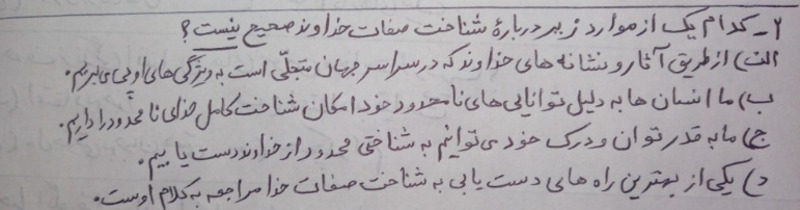 ۲ـ کدام یک از موارد زیر دربارهٔ شناخت صفات خداوند صحیح نیست؟
الف) از طریق آثار و نشانه های خداوند که در سراسر جهان متجلّی است به ویژگی های او پی می بریم.
ب) ما انسان ها به دلیل توانایی های نامحدود خود امکان شناخت کامل خدای نامحدود را داریم.
ج) ما به قدر توان و درک خود می توانیم به شناختی محدود از خداوند دست یابیم.
د) یکی از بهترین راه های دست یابی به شناخت صفات خدا مراجعه به کلام اوست.